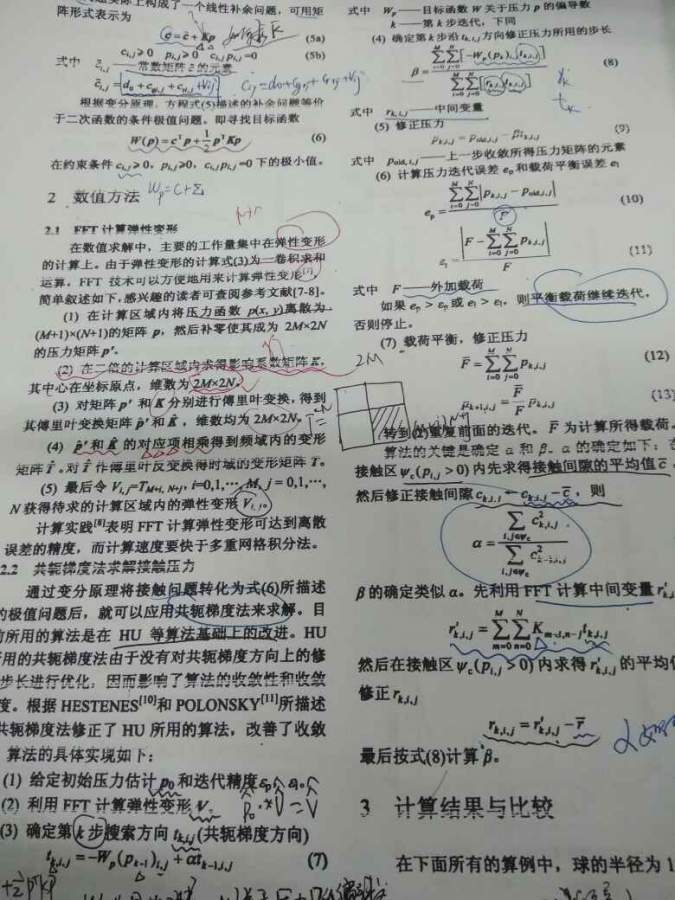 实际上构成了一个线性补余问题，可用矩
阵形式表示为
c = c̄ + Kp (5a)
c_{i,j}≥0 p_{i,j}≥0 c_{i,j}p_{i,j}=0 (5b)
式中 c̄_{i,j}——常数矩阵 c̄ 的元素
c̄_{i,j} = d₀ + c_{g,i,j} + c_{r,i,j} + V_{i,j}
根据变分原理，方程式(5)描述的补余问题等价
于二次函数的条件极值问题，即寻找目标函数
W(p) = c^T p + ½ p^T Kp (6)
在约束条件 c_{i,j}≥0，p_{i,j}≥0，c_{i,j}p_{i,j}=0 下的极小值。
2 数值方法
2.1 FFT 计算弹性变形
在数值求解中，主要的工作量集中在弹性变形
的计算上。由于弹性变形的计算式(3)为一卷积求和
运算，FFT 技术可以方便地用来计算弹性变形
简单叙述如下，感兴趣的读者可查阅参考文献[7-8]。
(1) 在计算区域内将压力函数 p(x, y)离散为
(M+1)×(N+1)的矩阵 p，然后补零使其成为 2M×2N
的压力矩阵 p'。
(2) 在二倍的计算区域内求得影响系数矩阵 K，
其中心在坐标原点，维数为 2M×2N。
(3) 对矩阵 p' 和 K 分别进行傅里叶变换，得到
其傅里叶变换矩阵 p̂' 和 K̂，维数均为 2M×2N。
(4) p̂' 和 K̂ 的对应项相乘得到频域内的变形
矩阵 T̂。对 T̂ 作傅里叶反变换得时域的变形矩阵 T。
(5) 最后令 V_{i,j}=T_{M+i, N+j}，i=0,1,…, M, j = 0,1,…,
N 获得待求的计算区域内的弹性变形 V_{i,j}。
计算实践[8]表明 FFT 计算弹性变形可达到离散
误差的精度，而计算速度要快于多重网格积分法。
2.2 共轭梯度法求解接触压力
通过变分原理将接触问题转化为式(6)所描述
的极值问题后，就可以应用共轭梯度法来求解。目
前所用的算法是在 HU 等算法基础上的改进。HU
所用的共轭梯度法由于没有对共轭梯度方向上的修
步长进行优化，因而影响了算法的收敛性和收敛
度。根据 HESTENES[10]和 POLONSKY[11]所描述
共轭梯度法修正了 HU 所用的算法，改善了收敛
算法的具体实现如下：
(1) 给定初始压力估计 p₀ 和迭代精度 ε_p、ε₁。
(2) 利用 FFT 计算弹性变形 V。
(3) 确定第 k 步搜索方向 t_{k,i,j} (共轭梯度方向)
t_{k,i,j} = −W_p(p_{k−1})_{i,j} + αt_{k−1,i,j} (7)
式中 W_p——目标函数 W 关于压力 p 的偏导数
k——第 k 步迭代，下同
(4) 确定第 k 步沿 t_{k,i,j} 方向修正压力所用的步长
(8)
式中 r_{k,i,j}——中间变量
(5) 修正压力
p_{k,i,j} = p_{old,i,j} − βt_{k,i,j} (9)
式中 p_{old,i,j}——上一步收敛所得压力矩阵的元素
(6) 计算压力迭代误差 e_p 和载荷平衡误差 e₁
e_p = ∑_{i=0}^{M} ∑_{j=0}^{N} |p_{k,i,j} − p_{old,i,j}| / F (10)
e₁ = |F − ∑_{i=0}^{M} ∑_{j=0}^{N} p_{k,i,j}| / F (11)
式中 F——外加载荷
如果 e_p > ε_p 或 e₁ > ε₁，则平衡载荷继续迭代，
否则停止。
(7) 载荷平衡，修正压力
F̄ = ∑_{i=0}^{M} ∑_{j=0}^{N} p_{k,i,j} (12)
(13)
转到(2)重复前面的迭代。F̄ 为计算所得载荷。
算法的关键是确定 α 和 β。α 的确定如下：在
接触区 ψ_c(p_{i,j} > 0) 内先求得接触间隙的平均值 c̄，
然后修正接触间隙 c_{k,i,j} ← c_{k,i,j} − c̄，则
α = ∑_{i,j∈ψ_c} c²_{k,i,j} / ∑_{i,j∈ψ_c} c²_{k−1,i,j}
β 的确定类似 α。先利用 FFT 计算中间变量 r'_{k,i,j}
r'_{k,i,j} = ∑_{m=0}^{M} ∑_{n=0}^{N} K_{m−i,n−j} t_{k,i,j}
然后在接触区 ψ_c(p_{i,j} > 0) 内求得 r'_{k,i,j} 的平均值
修正 r_{k,i,j}
r_{k,i,j} = r'_{k,i,j} − r̄
最后按式(8)计算 β。
3 计算结果与比较
在下面所有的算例中，球的半径为 1
2M